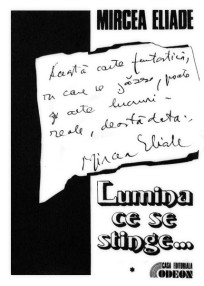 MIRCEA ELIADE
Această carte fantastică,
în care se găsesc, poate
și alte lucruri
reale, deodată:
Mircea Eliade
Lumina
ce se
stinge...
CASA EDITORIALA
ODEON